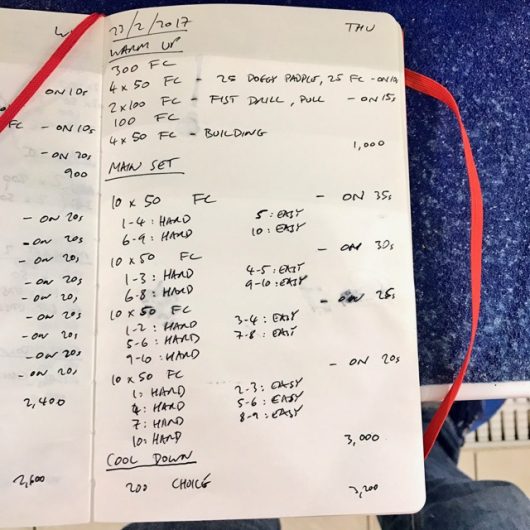 ON 10s
FC - ON 10s
- ON 20s
900
- ON 20s
- ON 20s
- ON 20s
- ON 20s
- ON 20s
- ON 20s
- ON 20s
- ON 20s
2,400
2,600
23/2/2017 THU
WARM UP
300 FC
4 x 50 FC - 25 DOGGY PADDLE, 25 FC - ON 10s
2 x 100 FC - FIST DRILL, PULL - ON 15s
100 FC
4 x 50 FC - BUILDING
1,000
MAIN SET
10 x 50 FC - ON 35s
1-4: HARD 5: EASY
6-9: HARD 10: EASY
10 x 50 FC - ON 30s
1-3: HARD 4-5: EASY
6-8: HARD 9-10: EASY
10 x 50 FC - ON 25s
1-2: HARD 3-4: EASY
5-6: HARD 7-8: EASY
9-10: HARD
10 x 50 FC - ON 20s
1: HARD 2-3: EASY
4: HARD 5-6: EASY
7: HARD 8-9: EASY
10: HARD
3,000
COOL DOWN
200 CHOICE 3,200